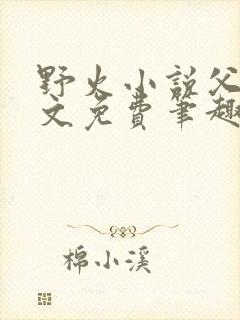 野火小说父
文免费笔趣
棉小溪